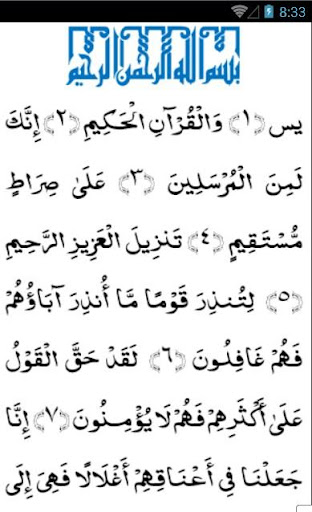 8:33
بسم الله الرحمن الرحيم
يس ﴿١﴾ وَالْقُرْآنِ الْحَكِيمِ ﴿٢﴾ إِنَّكَ
لَمِنَ الْمُرْسَلِينَ ﴿٣﴾ عَلَىٰ صِرَاطٍ
مُّسْتَقِيمٍ ﴿٤﴾ تَنزِيلَ الْعَزِيزِ الرَّحِيمِ
﴿٥﴾ لِتُنذِرَ قَوْمًا مَّا أُنذِرَ آبَاؤُهُمْ
فَهُمْ غَافِلُونَ ﴿٦﴾ لَقَدْ حَقَّ الْقَوْلُ
عَلَىٰ أَكْثَرِهِمْ فَهُمْ لَا يُؤْمِنُونَ ﴿٧﴾ إِنَّا
جَعَلْنَا فِي أَعْنَاقِهِمْ أَغْلَالًا فَهِيَ إِلَى